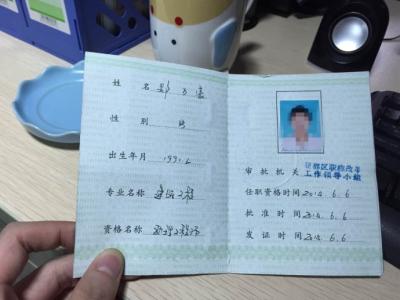 姓 名
性 别
出生年月 1991.2
专业名称 建筑工程
资格名称 助理工程师
审 批 机 关 工作领导小组
任职资格时间 2014.6.6
批 准 时 间 2014.6.6
发 证 时 间 2014.6.6